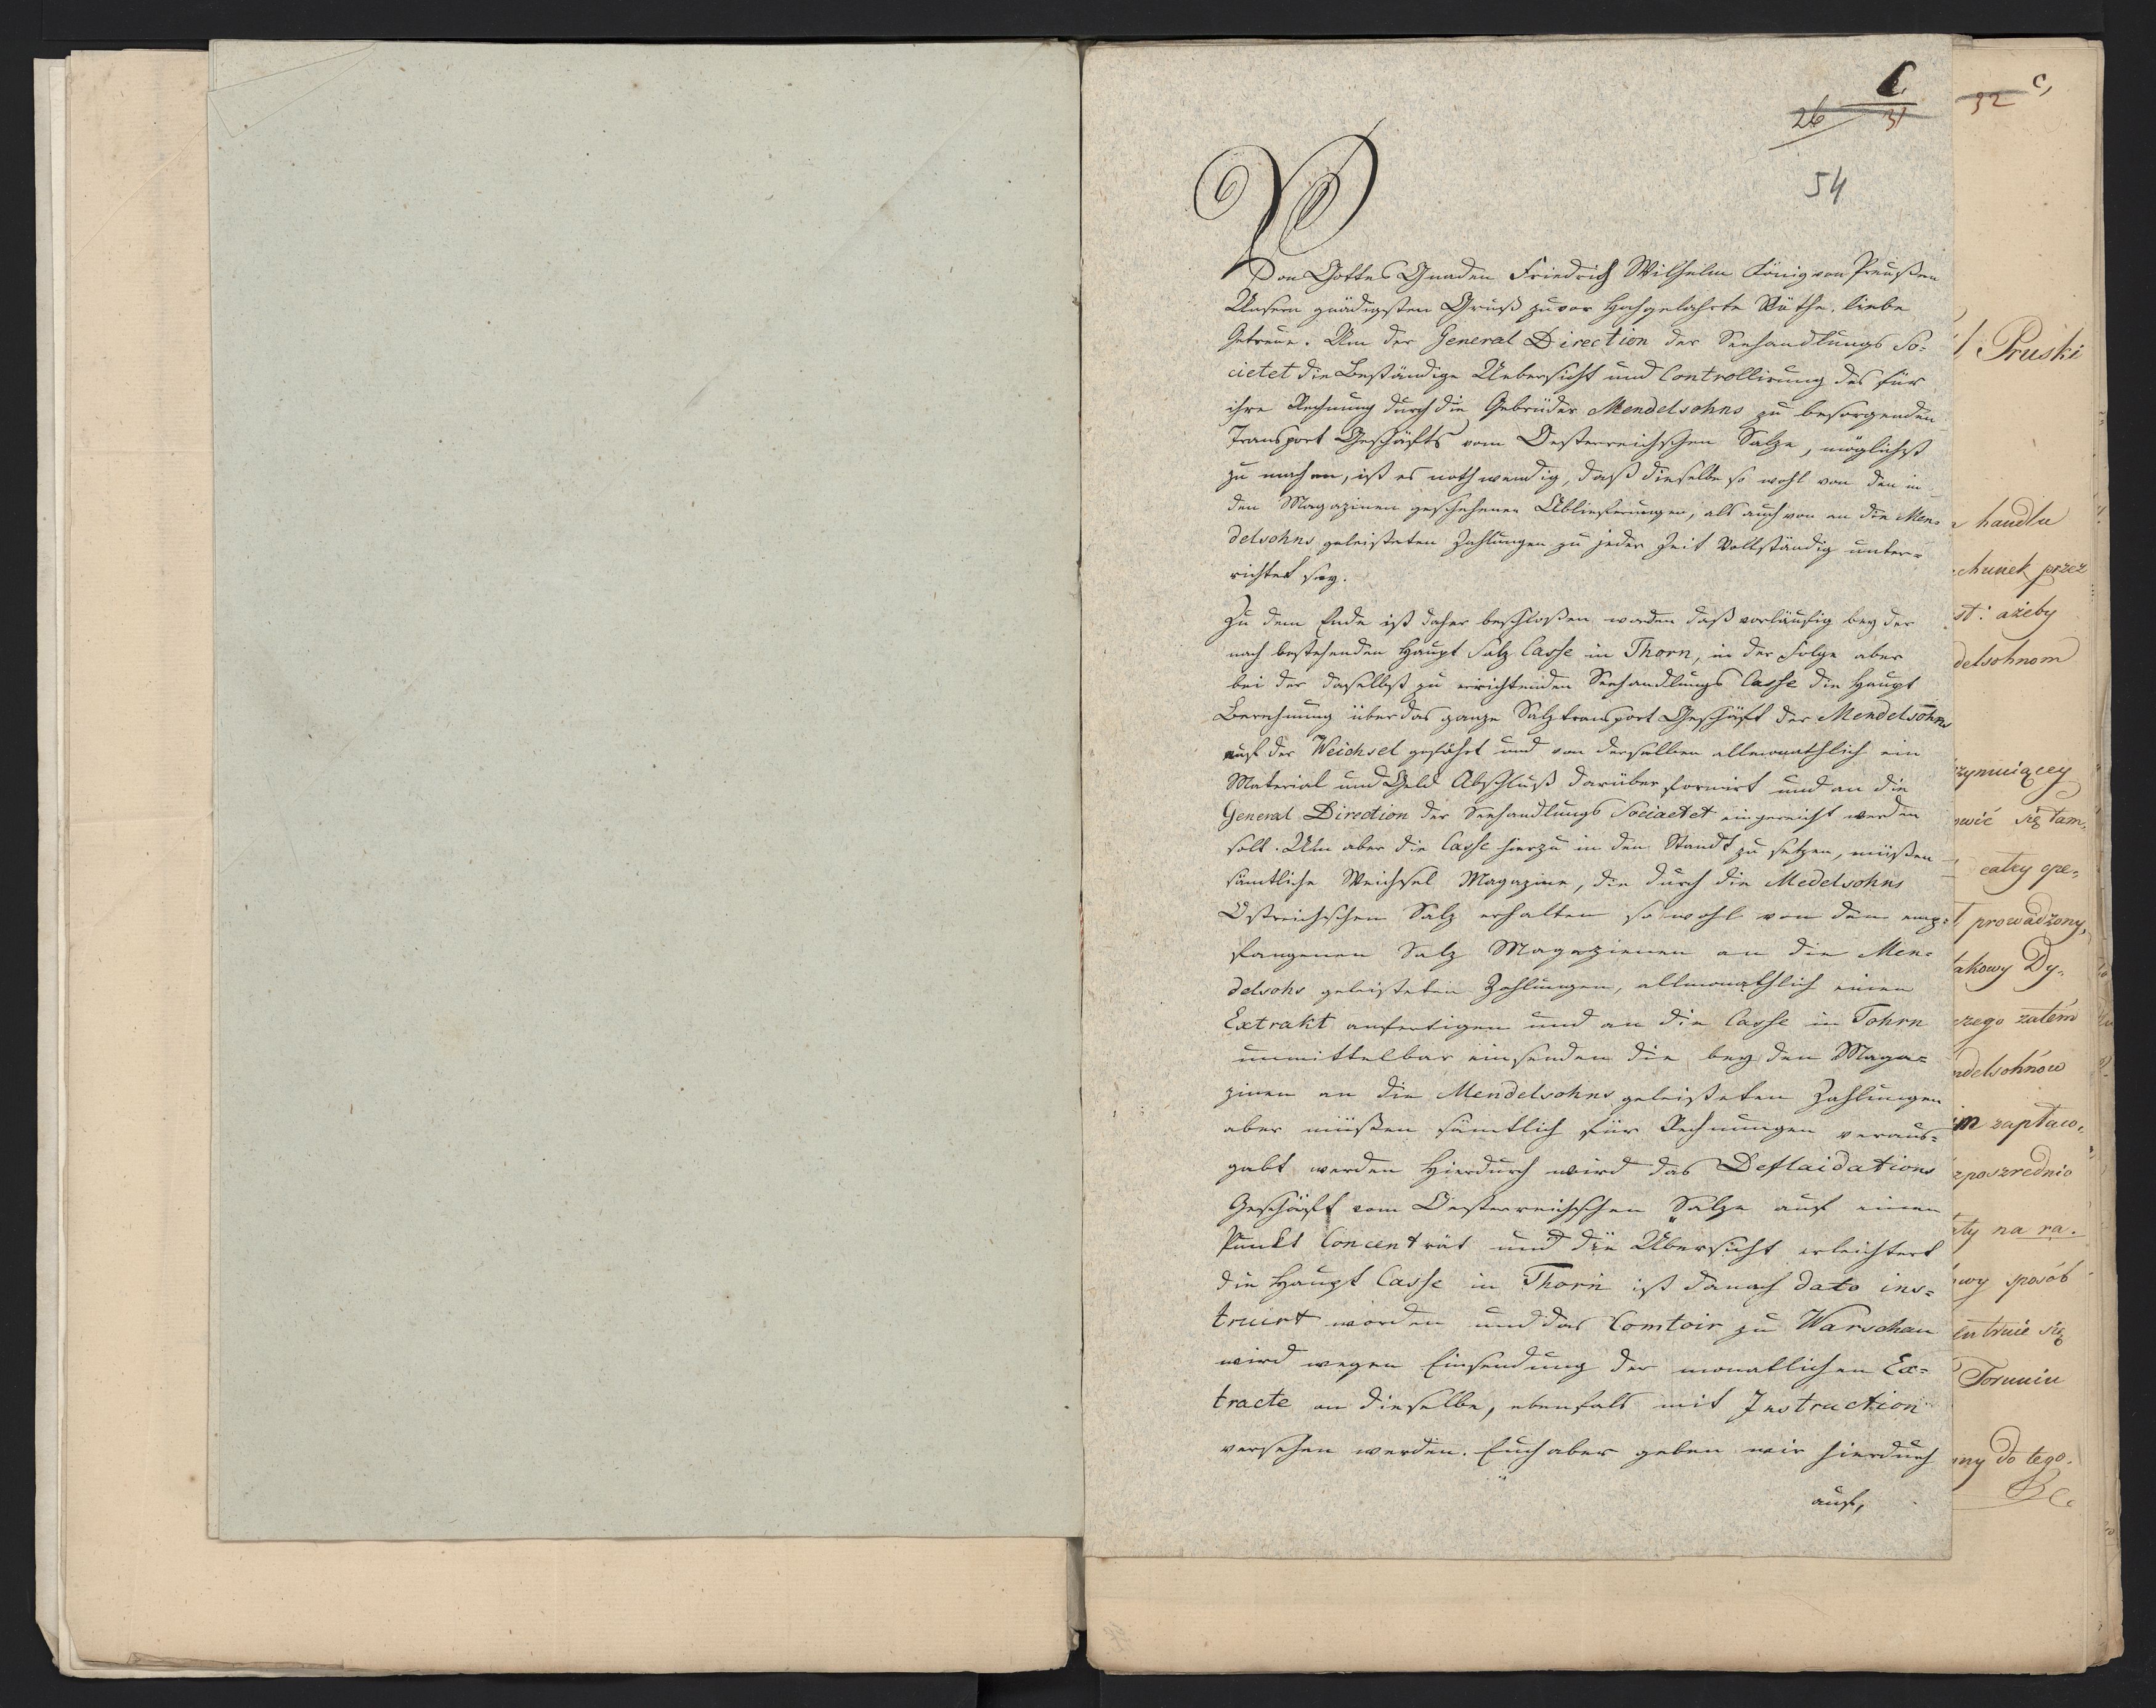 C.
26 31
54
Von Gottes Gnaden Friedrich Wilhelm König von Preußen
Unsern gnädigsten Gruß zuvor Hochgelahrte Räthe, liebe
Getreue. Um der General Direction der Seehandlungs So-
cietet die Beständige Uebersicht und Controllirung des für
ihre Rechnung durch die Gebrüder Mendelsohns zu besorgenden
Transport Geschäfts vom Oesterreichschen Salze, möglichst
zu machen, ist es nothwendig, daß dieselbe so wohl von den in
den Magazinen geschehenen Ablieferungen, als auch von an die Men-
delsohns geleisteten Zahlungen zu jeder Zeit Vollständig unter-
richtet sey.
Zu dem Ende ist daher beschloßen worden daß vorläufig bey der
noch bestehenden Haupt Salz Casse in Thorn, in der Folge aber
bei der daselbst zu errichtenden Seehandlungs Casse die Haupt
Berechnung über das ganze Salztransport Geschäft der Mendelsohns
auf der Weichsel geführt und von derselben allmonathlich ein
Material und Geld Abschluß darüber formirt und an die
General Direction der Seehandlungs Sociaetet eingereicht werden
soll. Um aber die Casse hierzu in den Standt zu setzen, müßen
sämtliche Weichsel Magazine, die durch die Medelsohns
Östreichschen Salz erhalten so wohl von dem emp-
fangenen Salz Magazienen an die Men-
delsohs geleisteten Zahlungen, allmonathlich einen
Extrakt anfertigen und an die Casse in Tohrn
unmittelbar einsenden die bey den Maga-
zinen an die Mendelsohns geleisteten Zahlungen
aber müßen sämtlich für Rechnungen veraus-
gabt werden Hierdurch wird das Deflaidations
Geschäft vom Oesterreichschen Salze auf einen
Punkt Concenträt und die Übersicht erleichtert
die Haupt Casse in Thorn ist danach dato ins-
truirt worden und das Comtoir zu Warschau
wird wegen Einsendung der monatlichen Ex-
tracte an dieselbe, ebenfals mit Instruction
versehen werden. Euch aber geben wir hierdurch
auf,
32 c,
Pruski
handlu
chunek przez
st: ażeby
delsohnom
zymuiącey
owić się tam,
catey ope-
prowadzony,
takowy Dy-
czego zatém
ndelsohnów
im zaptaco-
zposzrednio
aty na ra.
owy sposób
entruie się
Toruniu
ny do tego.
&c.